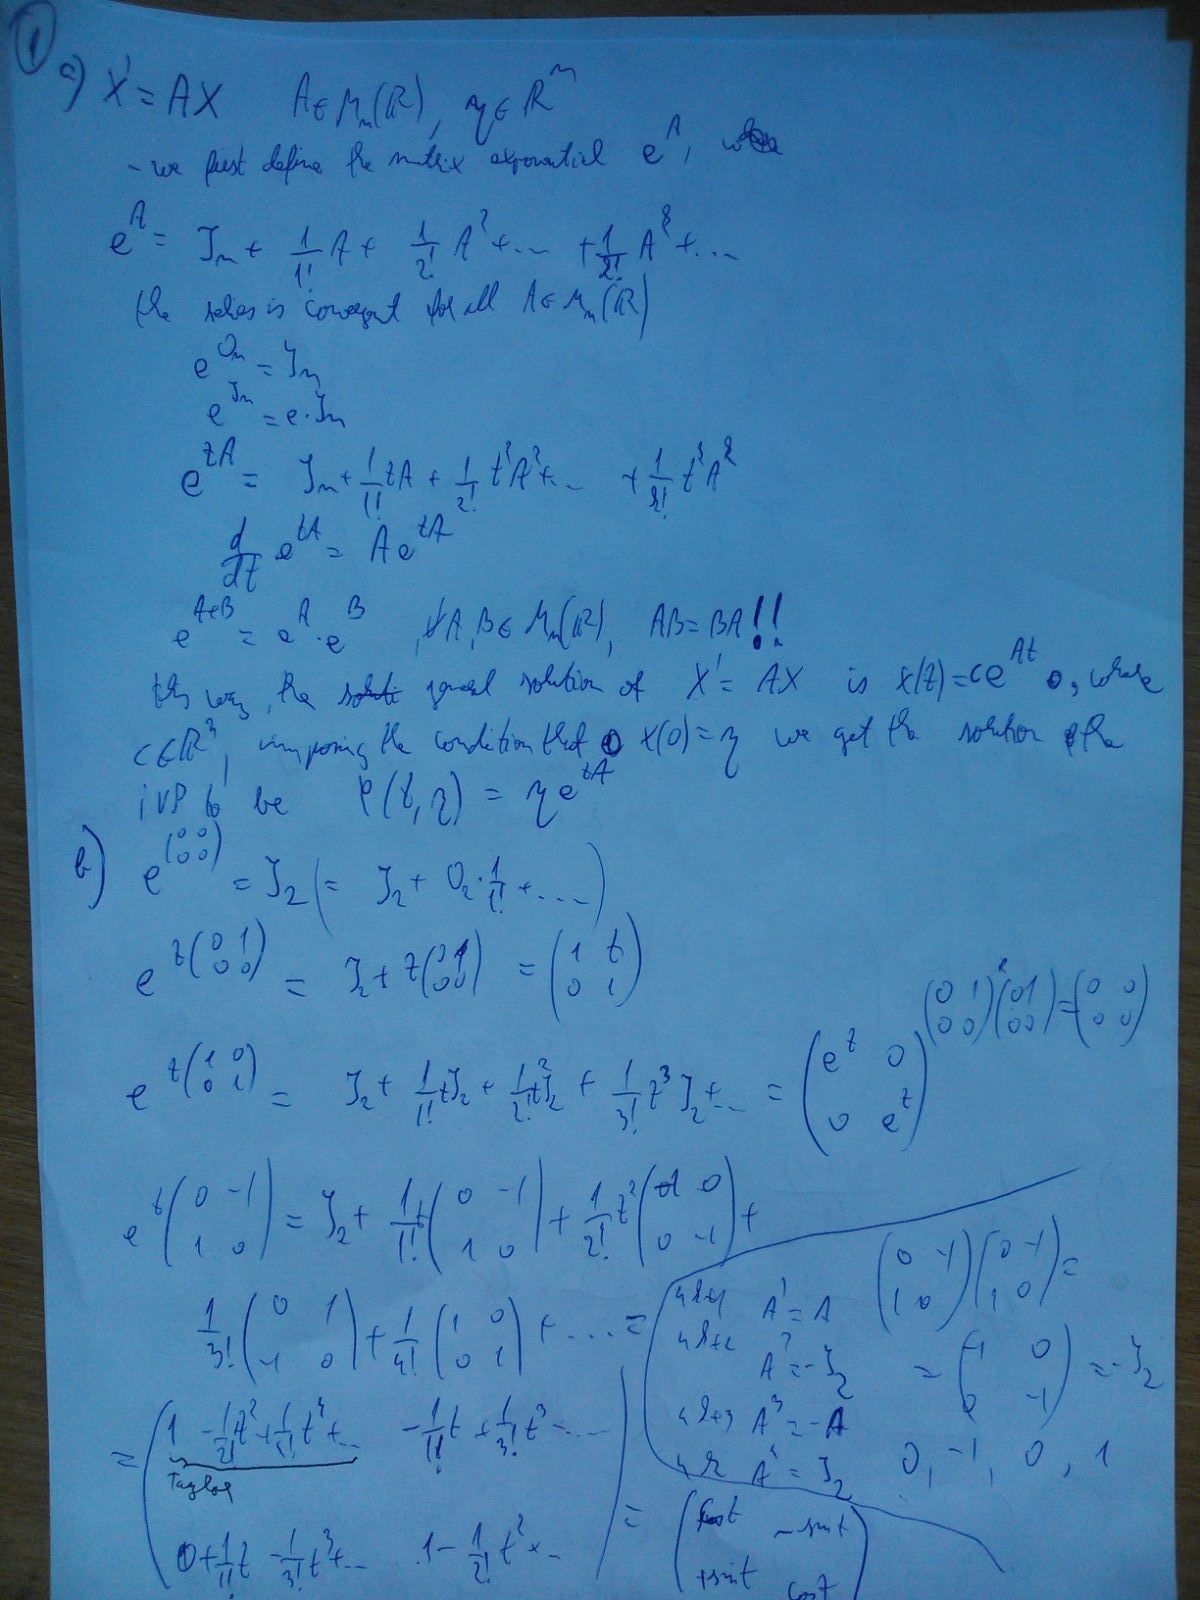 1
a) X' = AX   A ∈ M_n(ℝ), η ∈ ℝ^n
- we first define the matrix exponential e^A,
e^A = J_n + 1/1! A + 1/2! A^2 + ... + 1/k! A^k + ...
the series is convergent for all A ∈ M_n(ℝ)
e^{O_n} = J_n
e^{J_n} = e · J_n
e^{tA} = J_n + 1/1! tA + 1/2! t^2 A^2 + ... + 1/k! t^k A^k
d/dt e^{tA} = A e^{tA}
e^{A+B} = e^A · e^B , ∀ A, B ∈ M_n(ℝ), AB = BA !!
this way, the general solution of X' = AX is x(t) = c e^{At}, where
c ∈ ℝ^n, imposing the condition that x(0) = η we get the solution of the
IVP to be φ(t, η) = η e^{tA}
b) e^{(0 0 / 0 0)} = J_2 (= J_2 + O_2 · 1/1! + ....)
e^{t(0 1 / 0 0)} = J_2 + t(0 1 / 0 0) = (1 t / 0 1)
(0 1 / 0 0)(0 1 / 0 0) = (0 0 / 0 0)
e^{t(1 0 / 0 1)} = J_2 + 1/1! t J_2 + 1/2! t^2 J_2 + 1/3! t^3 J_2 + ... = (e^t 0 / 0 e^t)
e^{t(0 -1 / 1 0)} = J_2 + 1/1! t(0 -1 / 1 0) + 1/2! t^2(-1 0 / 0 -1) +
1/3! (0 1 / -1 0) + 1/4! (1 0 / 0 1) + .... =
4k+1 A^1 = A
4k+2 A^2 = -J_2
4k+3 A^3 = -A
4k A^4 = J_2
(0 -1 / 1 0)(0 -1 / 1 0) =
= (-1 0 / 0 -1) = -J_2
0, -1, 0, 1
= (1 - 1/2! t^2 + 1/4! t^4 + ...   -1/1! t + 1/3! t^3 - .... / 0 + 1/1! t - 1/3! t^3 + ...   1 - 1/2! t^2 + ...) = (cost -sint / +sint cost)
Taylor